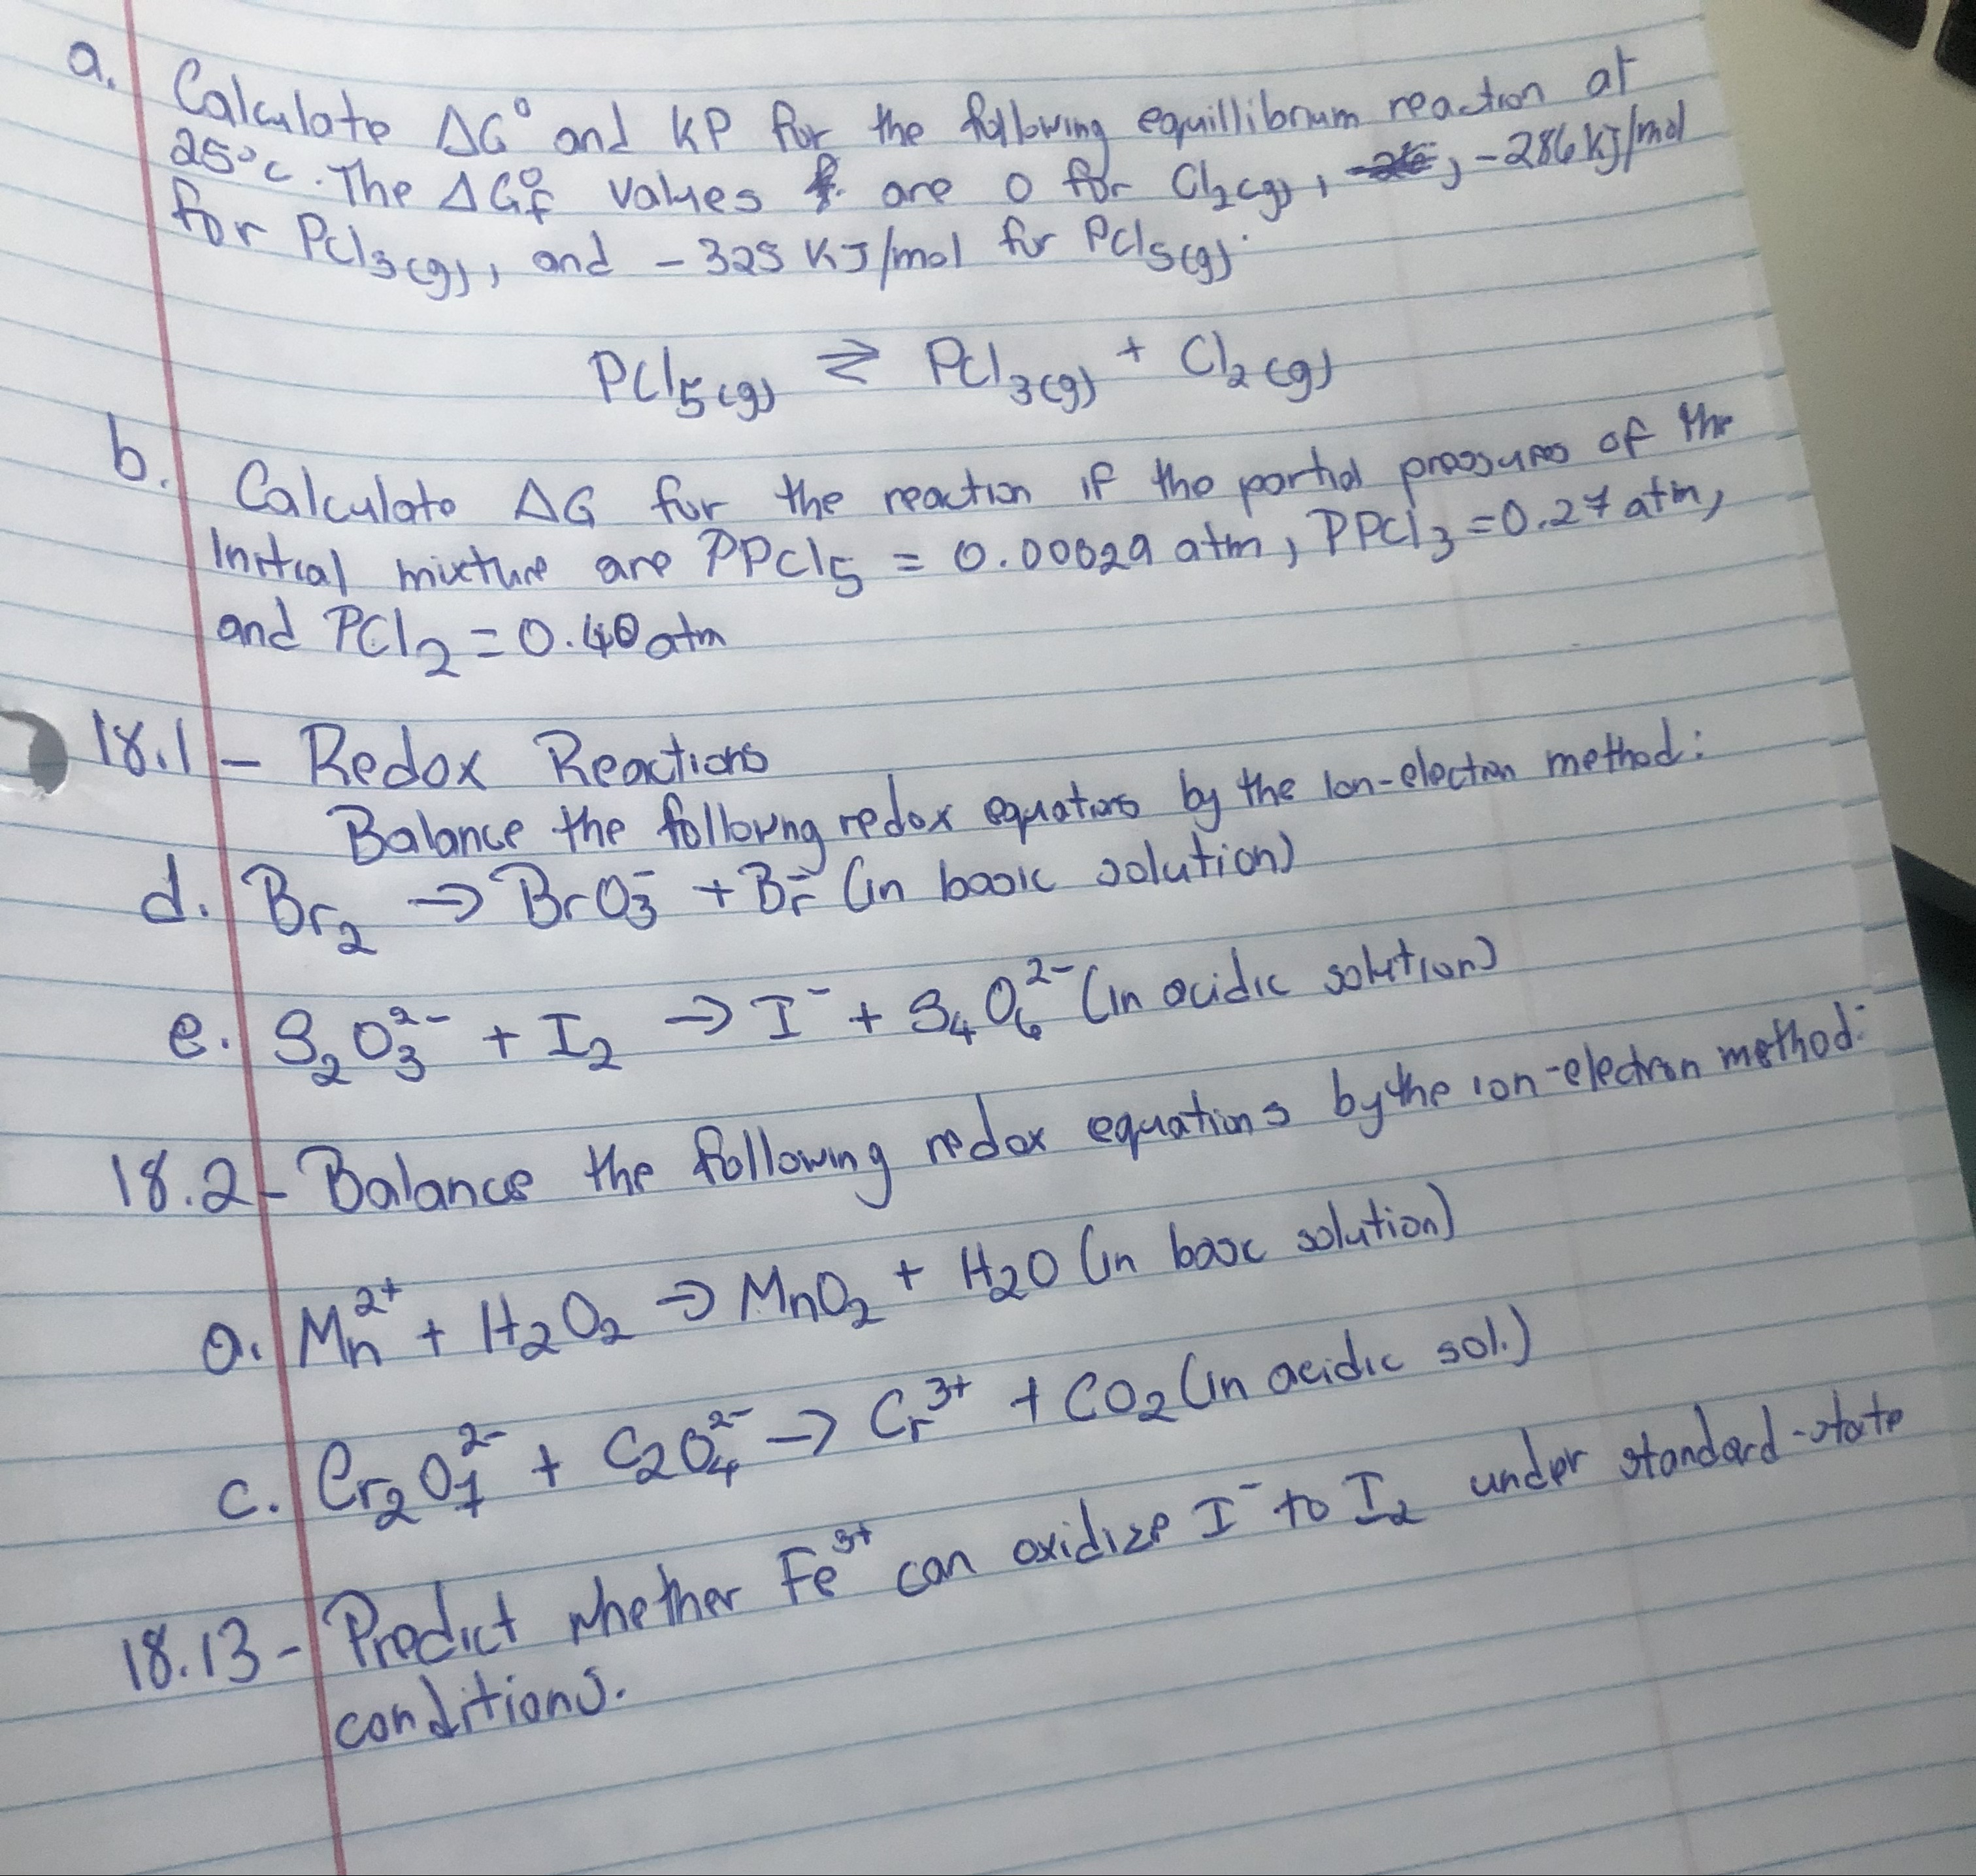 a. Calculate ΔG° and KP for the following equillibrium reaction at
25°C. The ΔG°f values are 0 for Cl₂(g), -286 KJ/mol
for PCl₃(g), and -325 KJ/mol for PCl₅(g).
PCl₅(g) ⇌ PCl₃(g) + Cl₂(g)
b. Calculate ΔG for the reaction if the partial pressures of the
Initial mixture are PPCl₅ = 0.0029 atm, PPCl₃ = 0.27 atm,
and PCl₂ = 0.40 atm
18.1 - Redox Reactions
Balance the following redox equations by the Ion-electron method:
d. Br₂ → BrO₃⁻ + Br⁻ (in basic solution)
e. S₂O₃²⁻ + I₂ → I⁻ + S₄O₆²⁻ (in acidic solution)
18.2 - Balance the following redox equations by the ion-electron method:
a. Mn²⁺ + H₂O₂ → MnO₂ + H₂O (in basic solution)
c. Cr₂O₇²⁻ + C₂O₄²⁻ → Cr³⁺ + CO₂ (in acidic sol.)
18.13 - Predict whether Fe³⁺ can oxidize I⁻ to I₂ under standard-state
conditions.